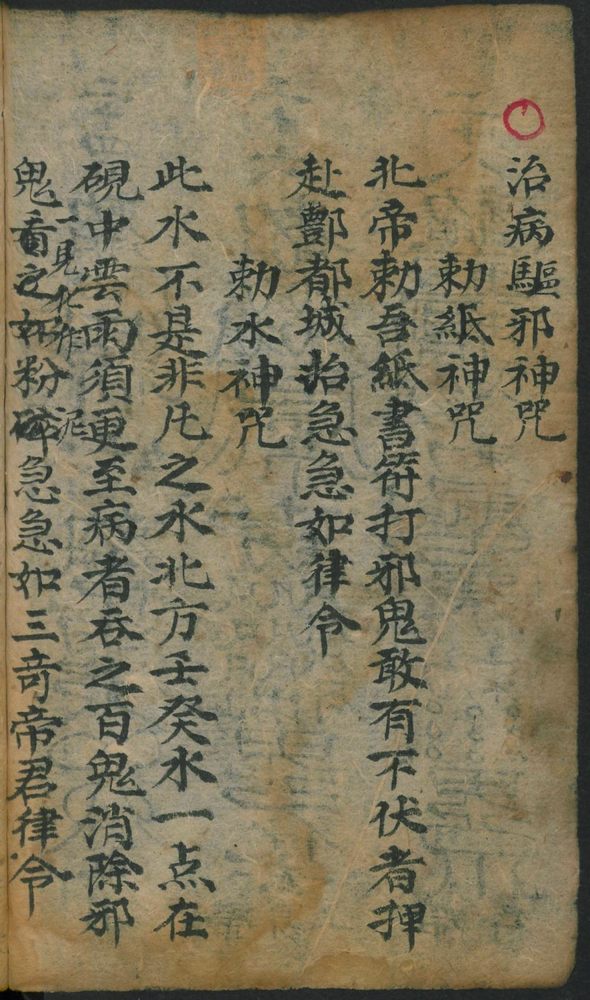 治病驅邪神咒
勅紙神咒
北帝勅吾紙書符打邪鬼敢有不伏者押
赴酆都城治急急如律令
勅水神咒
此水不是非凡之水北方壬癸水一点在
硯中雲雨須更至病者吞之百鬼消除邪
一見化作泥
鬼看之如粉碎急急如三奇帝君律令